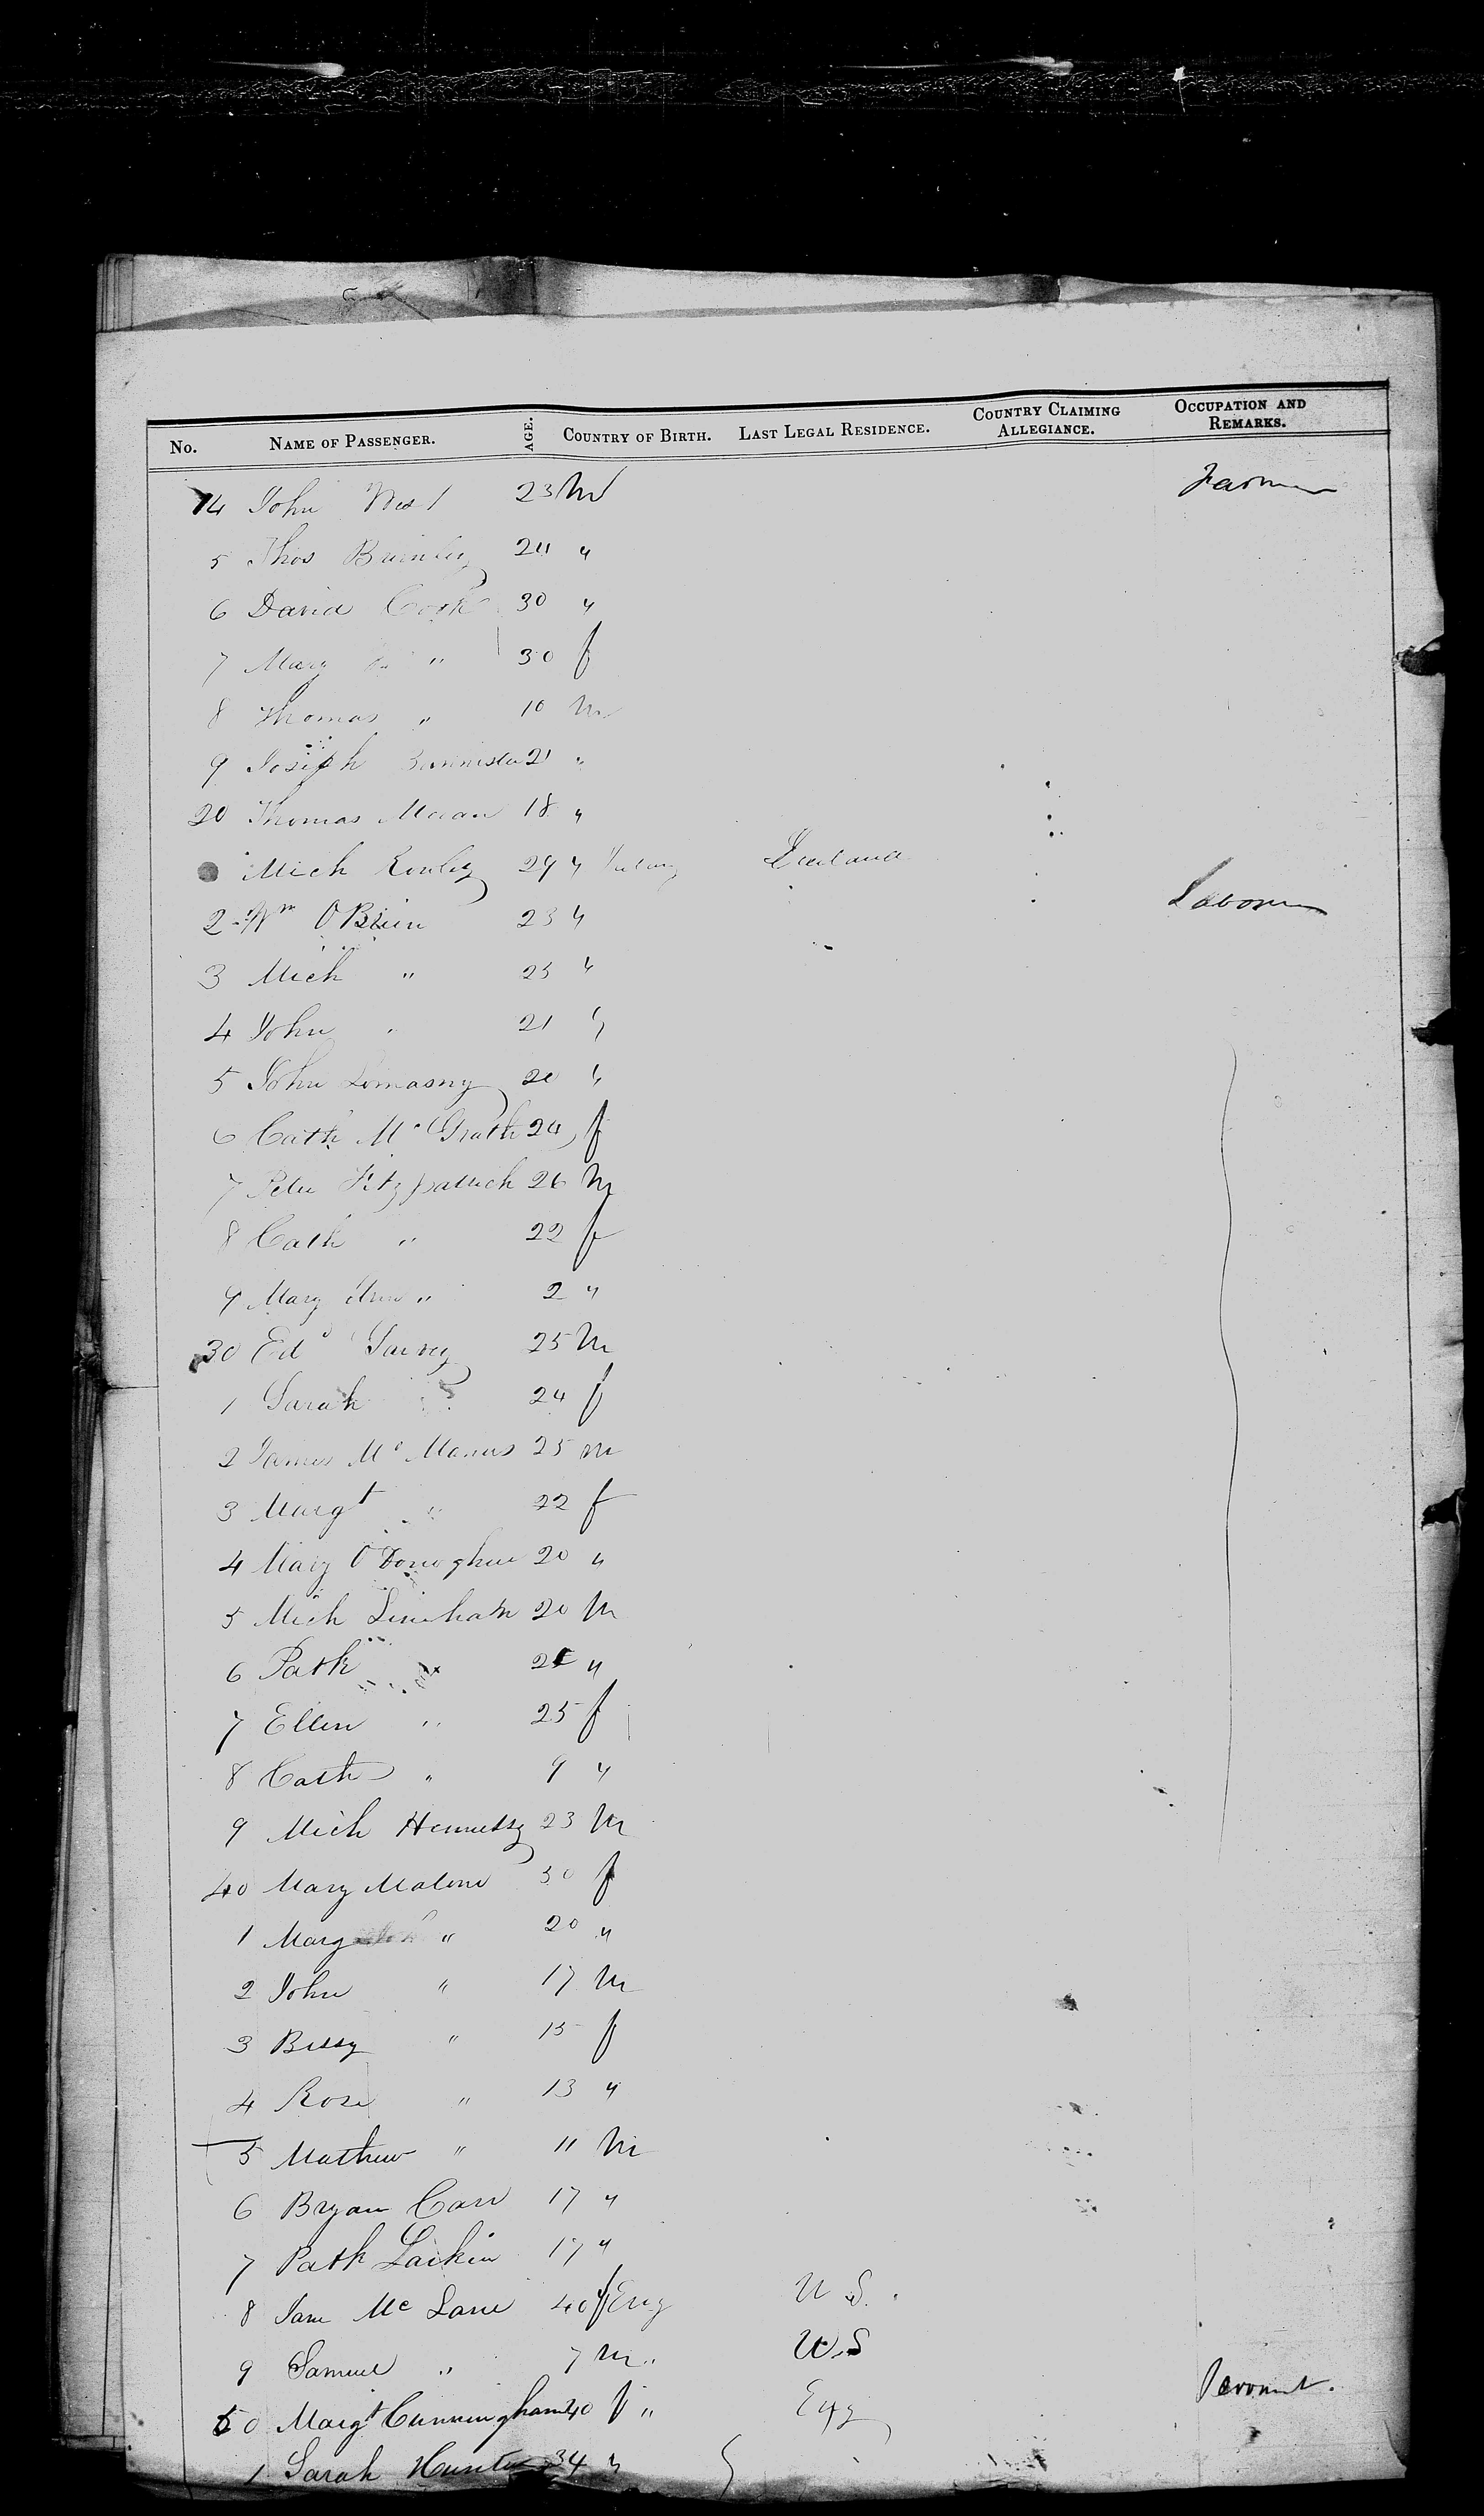 No. NAME OF PASSENGER. AGE. COUNTRY OF BIRTH. LAST LEGAL RESIDENCE. COUNTRY CLAIMING ALLEGIANCE. OCCUPATION AND REMARKS.
14 John West 23 M Farmer
5 Thos Brinley 24 "
6 David Cook 30 "
7 Mary " 30 f
8 Thomas " 10 M
9 Joseph Bannister 21 "
20 Thomas Moran 18 "
Mich 29 " Ireland Ireland
2 Wm O'Brien 23 " Laborer
3 Mich " 25 "
4 John " 21 "
5 John Lomasny 20 "
6 Cath Mc Grath 24 f
7 Peter Fitzpatrick 26 M
8 Cath " 22 f
9 Mary Ann " 2 "
30 Ed 25 M
1 Sarah 24 f
2 James Mc Manus 25 m
3 Margt " 22 f
4 Mary O'Donoghue 20 "
5 Mich Linehan 20 M
6 Patk " "
7 Ellen " 25 f
8 Cath " 9 "
9 Mich Hennessy 23 M
40 Mary Malone 30 f
1 Marg " 20 "
2 John " 17 M
3 Bessy " 15 f
4 Rose " 13 "
5 Mathew " 11 M
6 Bryan Carr 17 "
7 Patk Larkin 17 "
8 Jane Mc Lane 40 f Eng U.S.
9 Samuel " 7 M " U.S
50 Margt Cunningham 40 f " Eng Servant.
1 Sarah Hunter 34 "